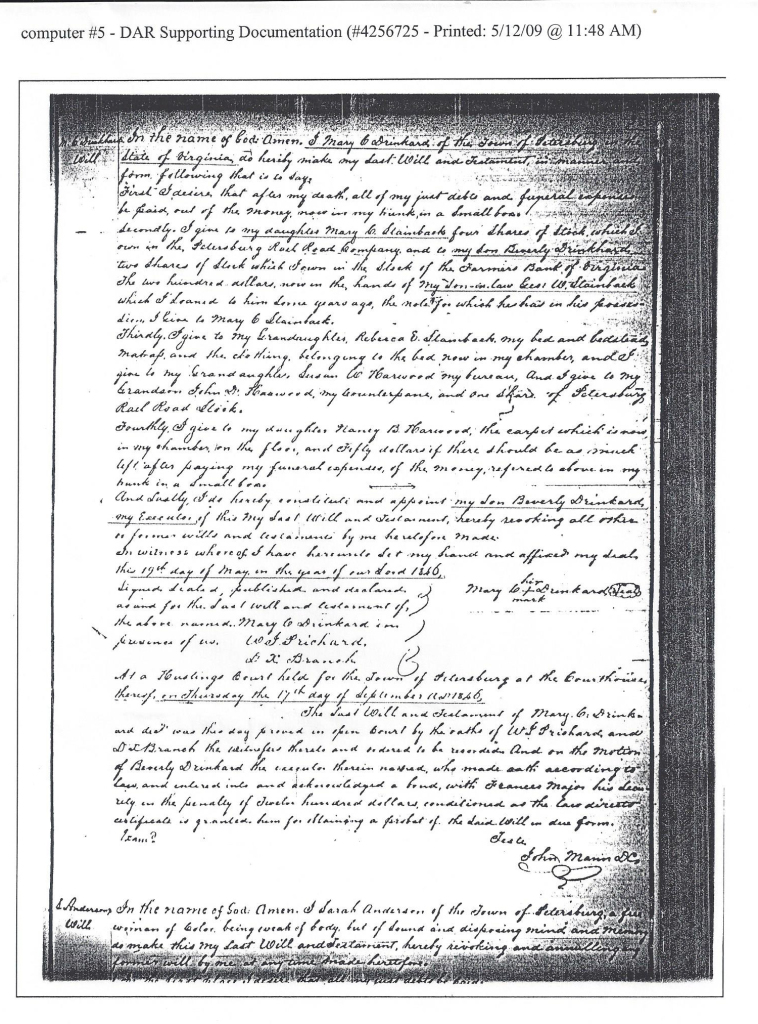 computer #5 - DAR Supporting Documentation (#4256725 - Printed: 5/12/09 @ 11:48 AM)
Will
In the name of God Amen. I Mary C Drinkard, of the Town of Petersburg
State of Virginia, do hereby make my Last Will and Testament, in manner
form, following that is to say,
First I desire, that after my death, all of my just debts and funeral expenses
be paid, out of the money, now in my trunk, in a small box.
Secondly. I give to my daughter Mary C. Stainback four Shares of Stock, which I
own in the, Petersburg Rail Road Company, and to my Son Beverly Drinkhard
two Shares of Stock which I own in the Stock of the Farmers Bank of Virginia
The two hundred dollars, now in the, hands of My Son-in law Geo: W. Stainback
which I loaned to him some years ago, the note for which he has in his posses-
sion, I give to Mary C Stainback.
Thirdly. I give to my Grandaughter, Rebecca E. Stainback, my bed and bedstead
and the clothing, belonging to the bed now in my chamber, and I
give to my Grandaughter, Susan W Harwood my bureau, And I give to my
Grandson John D. Haswood, my Counterpane, and one Share of Petersburg
Rail Road Stock.
Fourthly. I give to my daughter Nancy B Harwood, the carpet which is now
in my chamber, on the floor, and Fifty dollars if there should be as much
left after paying my funeral expenses, of the money, refered to above in my
trunk in a small box
And Lastly, I do hereby constitute and appoint my Son Beverly Drinkard,
my Executor, of this My Last Will and Testament, hereby revoking all other
or former wills and testaments by me heretofore made.
In witness whereof I have hereunto Set my hand and affixed my seal
this 19th day of May, in the year of our Lord 1846.
Signed Sealed, published and declared,
as and for the Last will and testament of,
the above named. Mary C Drinkard in
presence of us. W J Prichard,
D. X Branch
her
Mary C + Drinkard Seal
mark
At a Hustings Court held for the Town of Petersburg at the Courthouse
thereof, on Thursday the 17th day of September AD 1846,
The Last Will and Testament of Mary. C. Drink-
ard dec'd was this day proved in open Court by the oaths of W J Prichard, and
D X Branch the witnesses thereto and ordered to be recorded And on the Motion
of Beverly Drinkard the executor therein named, who made oath according to
Law, and entered into and acknowledged a bond, with Frances Major his Secu-
rety in the penalty of Twelve hundred dollars, conditioned as the law directs
certificate is granted him for obtaining a probat of the said Will in due form.
Exam?
Teste
John, Mann DC.
S Andersons
Will
In the name of God Amen. I Sarah Anderson of the Town of Petersburg, a free
woman of Color, being weak of body, but of Sound and disposing mind and Memory
do make this my Last Will and Testament, hereby revoking and annulling
former will by me at any time made heretofore.
desire that all my just debts be paid.